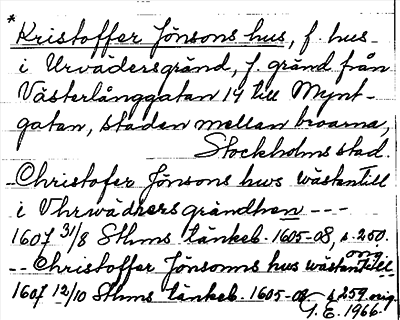 * Kristoffer Jönsons hus, f. hus
i Urvädersgränd, f. gränd från
Västerlånggatan 14 till Mynt-
gatan, staden mellan broarna,
Stockholms stad.
-- Christofer Jönsons hws wästantill
i Vhrwäders grändhen ---
1607 31/8 Sthms tänkeb. 1605-08, s. 250.
orig.
-- Christoffer Jönsonns hus wästantill --
1607 12/10 Sthms tänkeb. 1605-08 s 259 orig.
G. E. 1966.